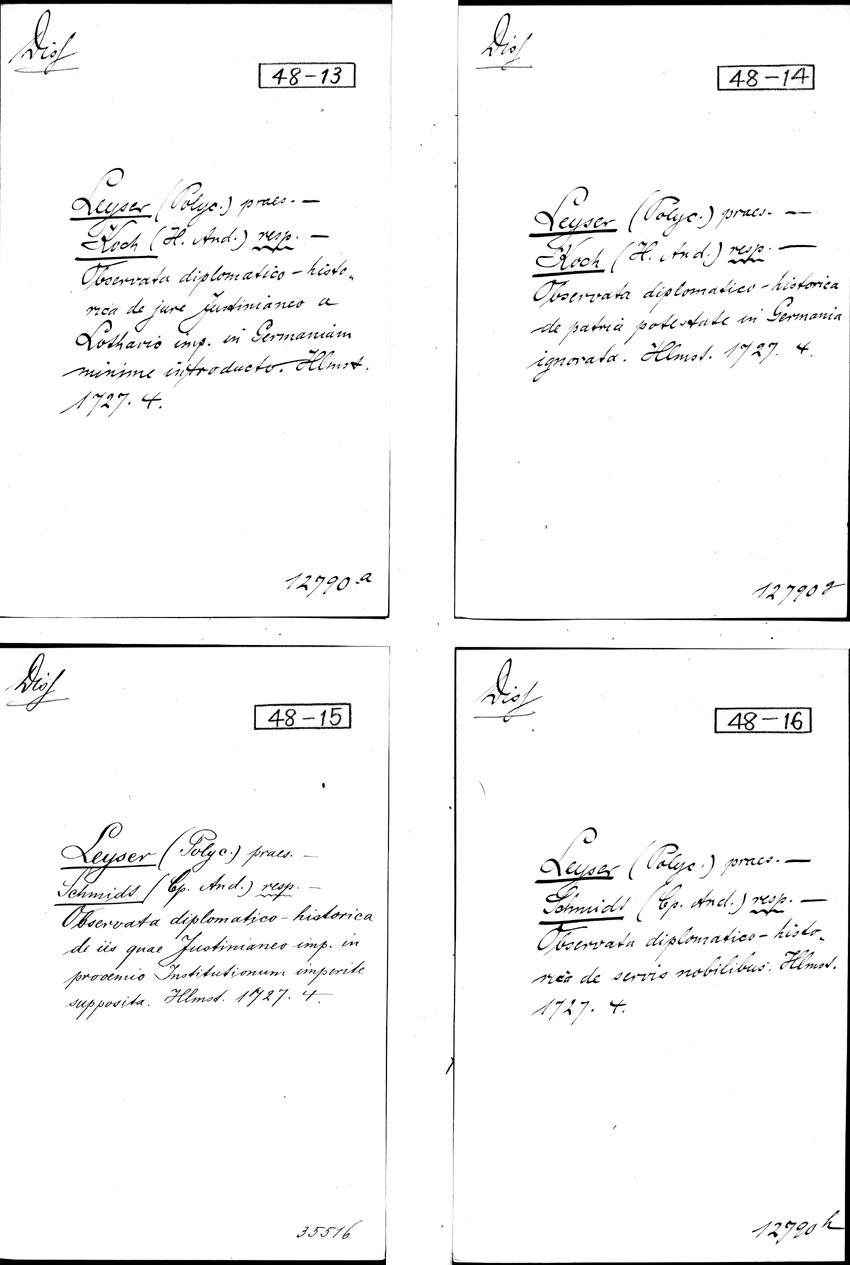 Diss
48-13
Leyser (Polyc.) praes. —
Koch (H. And.) resp. —
Observata diplomatico-histo-
rica de jure Justinianeo a
Lothario imp. in Germaniam
minime introducto. Hlmst.
1727. 4.
12790 a
Diss
48-14
Leyser (Polyc.) praes. —
Koch (H. And.) resp. —
Observata diplomatico-historica
de patria potestate in Germania
ignorata. Hlmst. 1727. 4.
12790 g
Diss
48-15
Leyser (Polyc.) praes. —
Schmidt (Cp. And.) resp. —
Observata diplomatico-historica
de iis quae Justinianeo imp. in
prooemio Institutionum imperite
supposita. Hlmst. 1727. 4.
35516
Diss
48-16
Leyser (Polyc.) praes. —
Schmidt (Cp. And.) resp. —
Observata diplomatico-histo-
rica de servis nobilibus. Hlmst.
1727. 4.
12790 h